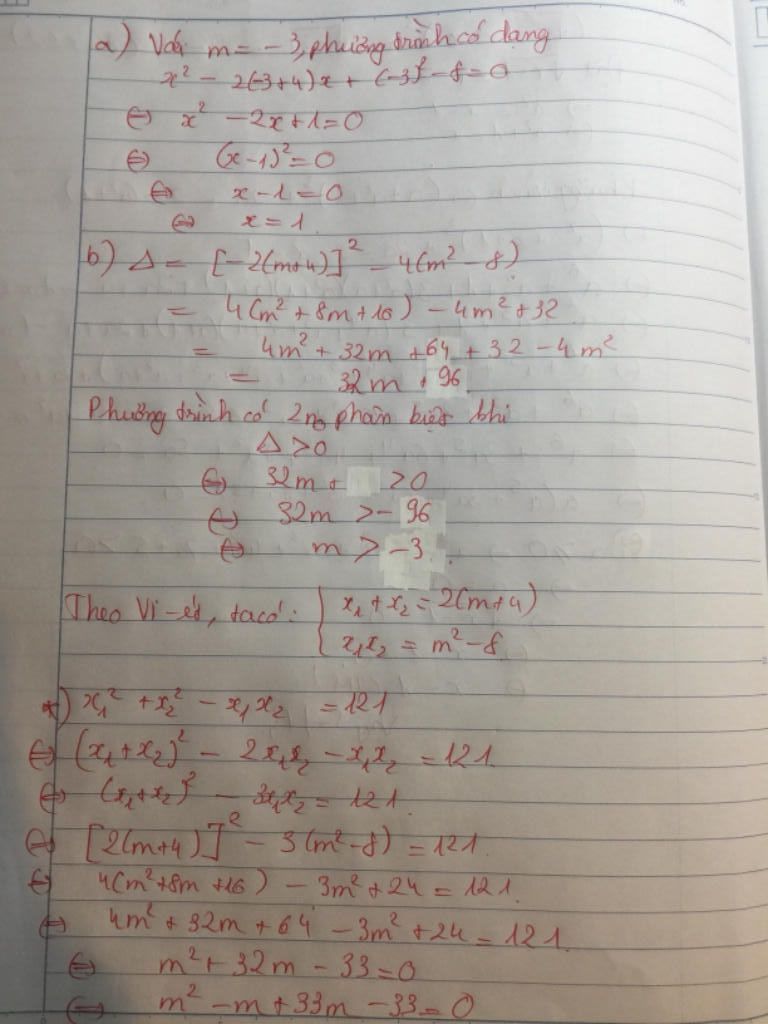 a) Với m = -3, phương trình có dạng
x² - 2(-3+4)x + (-3)² - 8 = 0
⇔ x² - 2x + 1 = 0
⇔ (x-1)² = 0
⇔ x - 1 = 0
⇔ x = 1
b) Δ = [-2(m+4)]² - 4(m² - 8)
= 4(m² + 8m + 16) - 4m² + 32
= 4m² + 32m + 64 + 32 - 4m²
= 32m + 96
Phương trình có 2 no phân biệt khi
Δ > 0
⇔ 32m + > 0
⇔ 32m > - 96
⇔ m > -3
Theo Vi-ét, ta có: { x₁ + x₂ = 2(m+4)
x₁x₂ = m² - 8
*) x₁² + x₂² - x₁x₂ = 121
⇔ (x₁+x₂)² - 2x₁x₂ - x₁x₂ = 121
⇔ (x₁+x₂)² - 3x₁x₂ = 121
⇔ [2(m+4)]² - 3(m²-8) = 121
⇔ 4(m²+8m+16) - 3m² + 24 = 121
⇔ 4m² + 32m + 64 - 3m² + 24 = 121
⇔ m² + 32m - 33 = 0
⇔ m² - m + 33m - 33 = 0